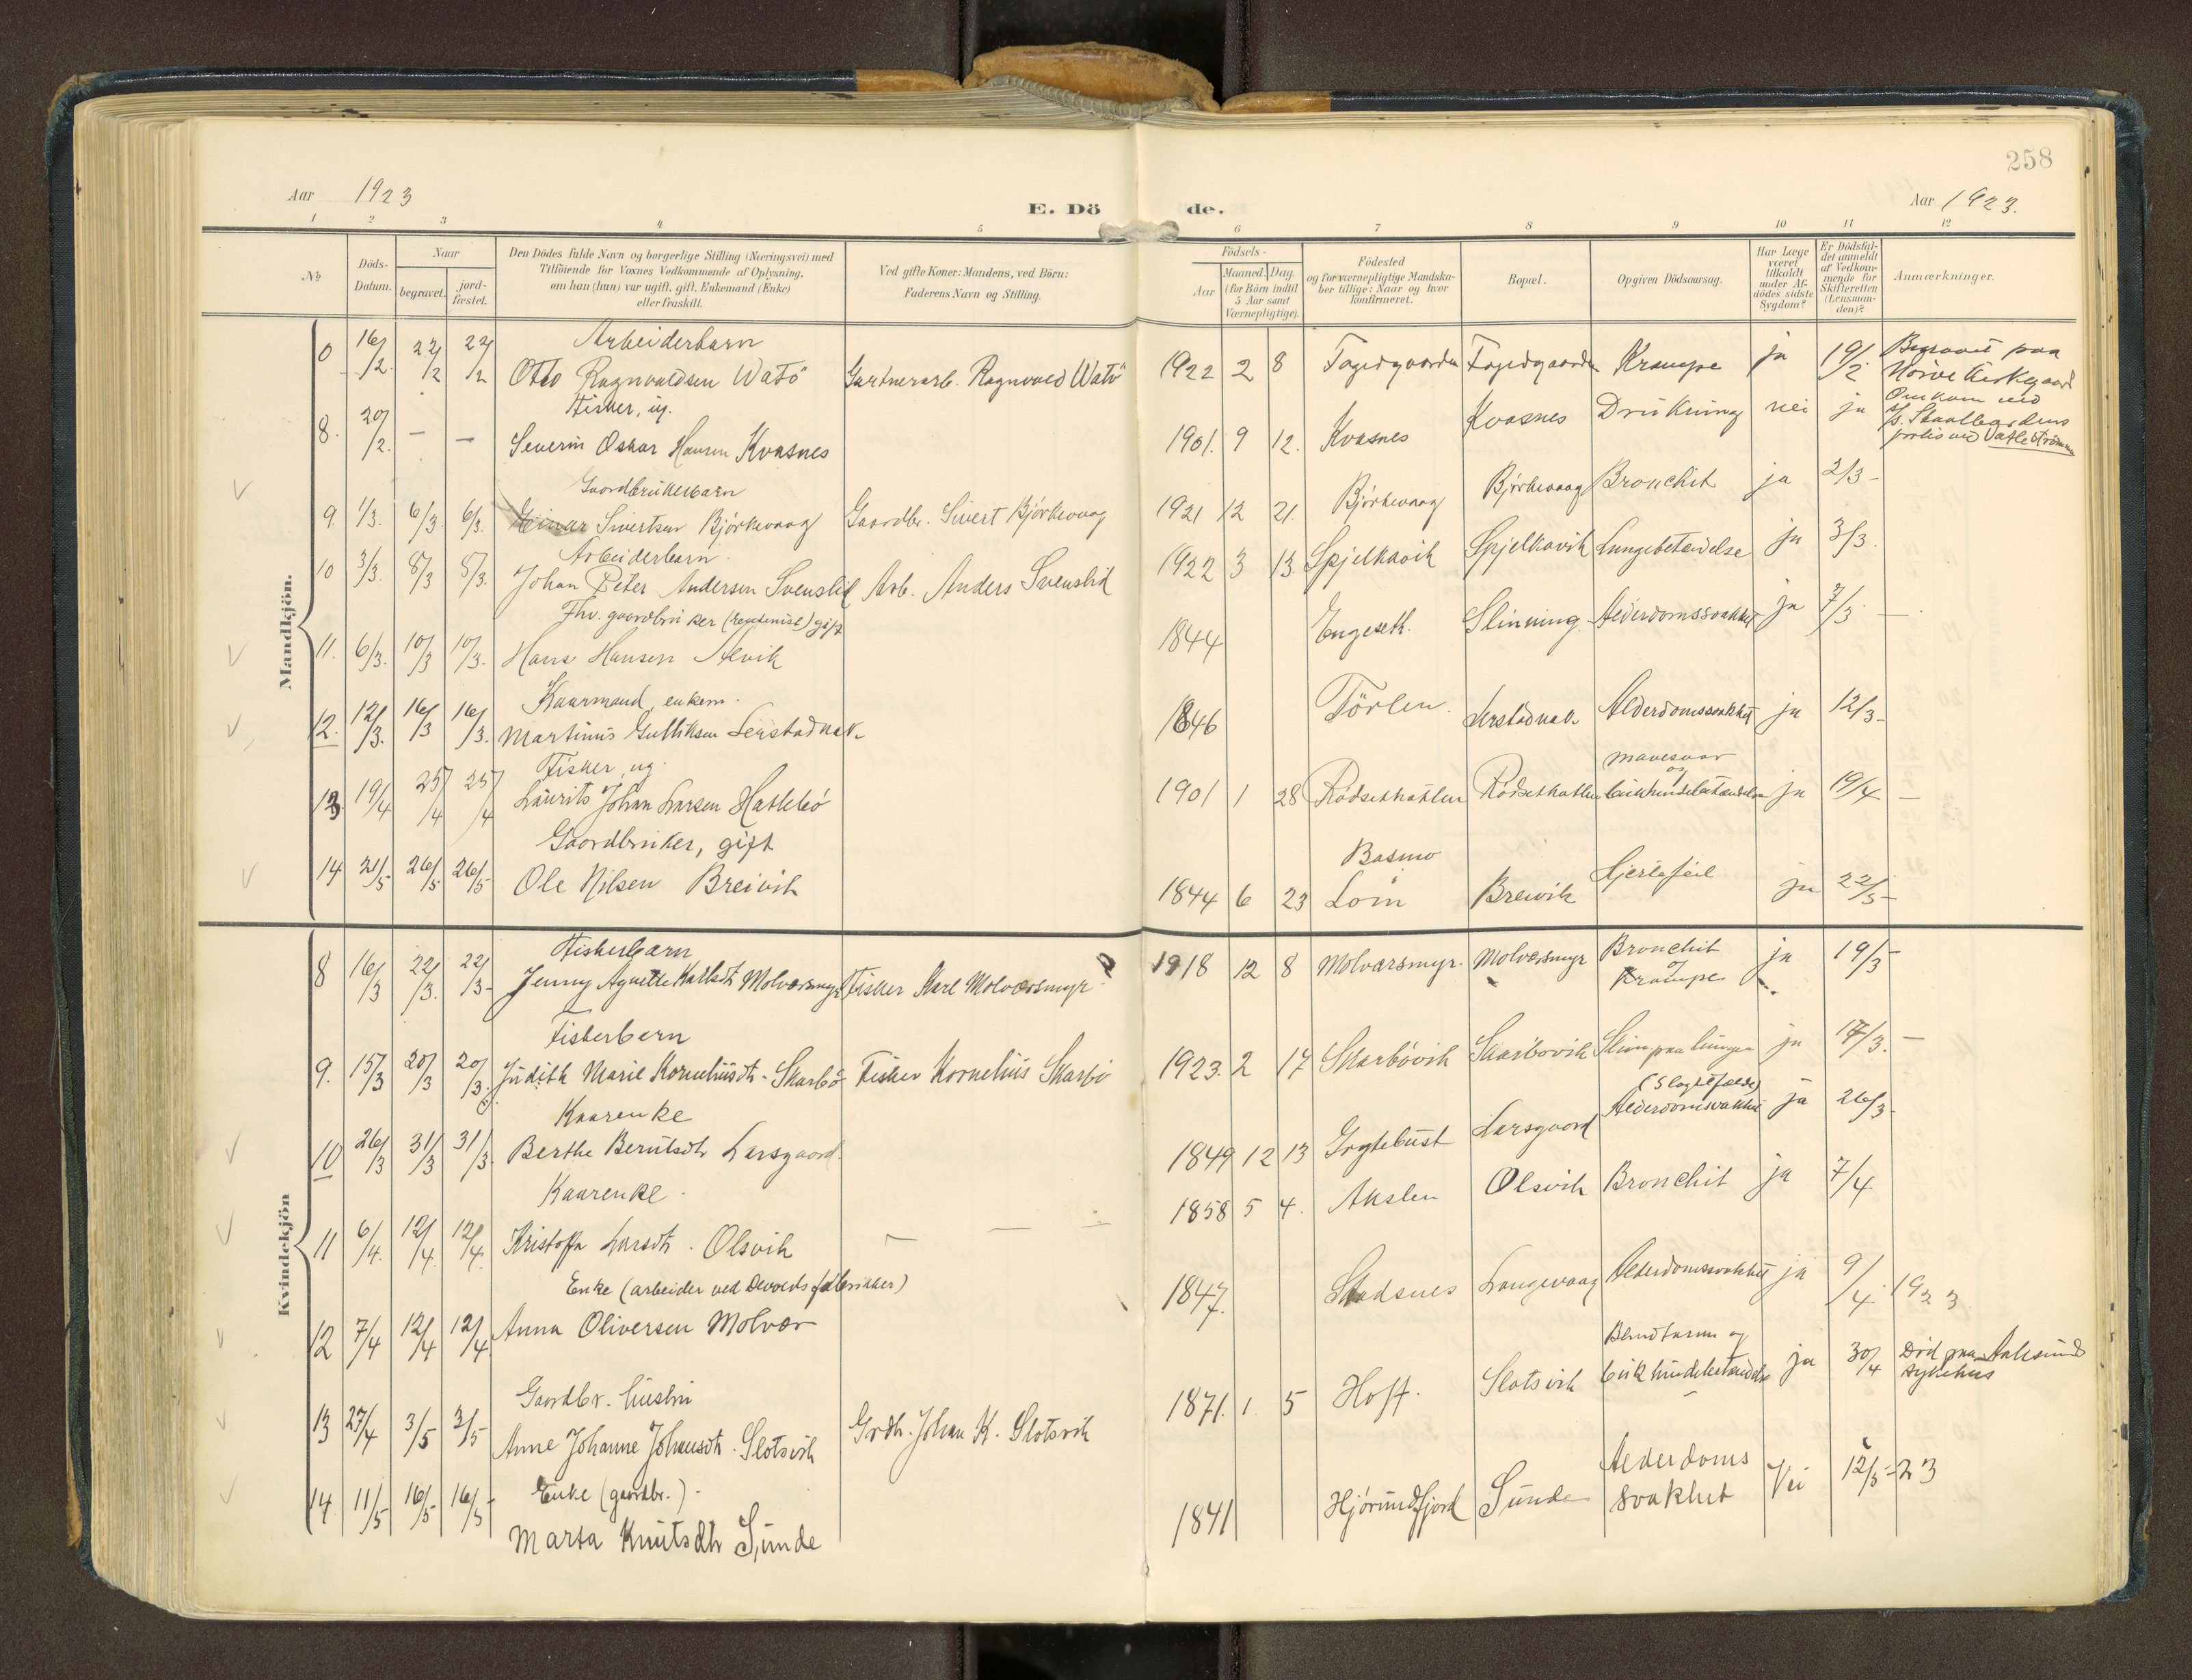 258
Aar 1923
E. Döde.
Aar 1923.
1 2 3 4 5 6 7 8 9 10 11 12
No
Döds-Datum.
Naar
begravet.
jord-fæstet.
Den Dödes fulde Navn og borgerlige Stilling (Næringsvei) med
Tilföiende for Voxnes Vedkommende af Oplysning,
om han (hun) var ugift, gift, Enkemand (Enke)
eller fraskilt.
Ved gifte Koner: Mandens, ved Börn:
Faderens Navn og Stilling.
Födsels-
Aar
Maaned. Dag.
(for Börn indtil
5 Aar samt
Værnepligtige).
Födested
og for værnepligtige Mandska-
ber tillige: Naar og hvor
konfirmeret.
Bopæl.
Opgiven Dödsaarsag.
Har Læge
været
tilkaldt
under Af-
dödes sidste
Sygdom?
Er Dödsfal-
det anmeldt
af Vedkom-
mende for
Skifteretten
(Lensman-
den)?
Anmærkninger.
Mandkjön.
Arbeiderbarn
0 16/2 22/2 22/2 Otto Ragnvaldsen Watö Gartnerarb. Ragnvald Watö 1922 2 8 Fogedgaarden Fogedgaarden Krampe ja 19/2 Begravet paa
Nörve Kirkegaard
Fisker, ug.
8. 20/2. — — Severin Oskar Hansen Kvasnes 1901. 9 12. Kvasnes Kvasnes Drukning nei ja Omkom med
s/s. Skaalbardens
forlis ved Vatleströmmen
Gaardbrukerbarn
9. 1/3. 6/3. 6/3. Einar Sivertsen Björkevaag Gaardbr. Sivert Björkevaag 1921 12 21. Björkevaag Björkevaag Bronchit ja 2/3-
Arbeiderbarn.
10 3/3. 8/3 8/3. Johan Peter Andersen Svenslid Arb. Anders Svenslid 1922 3 13. Spjelkavik Spjelkavik Lungebetændelse ja 3/3.
Fhv. gaardbruker (rentenist) gift
11. 6/3. 10/3 10/3. Hans Hansen Alvik 1844 Engeseth. Slinning Alderdomssvakhet ja 7/3. —
Kaarmand, enkem.
12. 12/3. 16/3 16/3. Martinus Gulliksen Lerstadvak. 1846 Törlen. Lerstadvak. Alderdomssvakhet ja 12/3-
Fisker, ug.
13. 19/4 25/4 25/4 Laurits Johan Larsen Hatlebö 1901 1 28 Rödsethatlen Rödsethatlen mavesaar
og
bukhindebetændelse ja 19/4 —
Gaardbruker, gift
14 21/5 26/5 26/5 Ole Nilsen Breivik 1844 6 23 Basmo
Lom Breivik Hjertefeil ja 22/5-
Kvindekjön
Fiskerbarn
8 16/3 22/3. 22/3- Jenny Agnette Karlsdt Molværsmyr Fisker Karl Molværsmyr 1918 12 8 Molværsmyr. Molværsmyr Bronchit
og
Krampe ja 19/3-
Fiskerbarn
9. 15/3 20/3 20/3. Judith Marie Korneliusdt. Skarbö Fisker Kornelius Skarbö 1923. 2 17 Skarbövik Skarbövik Slim paa lungen ja 17/3. —
Kaarenke
10 26/3 31/3 31/3. Berthe Berntsdtr Larsgaard. 1849 12 13 Grytebust Larsgaard (Slagtilfælde)
Alderdomssvakhet ja 26/3-
Kaarenke.
11 6/4. 12/4. 12/4. Kristoffa Larsdt. Olsvik 1858 5 4. Akslen Olsvik Bronchit ja 7/4
Enke (arbeider ved Devolds fabrikker)
12 7/4 12/4 12/4. Anna Oliversen Molvær 1847. Stadsnes Langevaag Alderdomssvakhet ja 9/4. 1923
Gaardbr. hustru
13 27/4 3/5 3/5 Anne Johanne Johansdt. Slotsvik Grdb. Johan K. Slotsvik 1871. 1. 5 Hoff. Slotsvik Blindtarm og
bukhindebetændelse ja 30/4 Död paa Aalesunds
sykehus
Enke (gaardbr.).
14. 11/5 16/5 16/5- Marta Knutsdtr Sunde 1841 Hjörundfjord Sunde Alderdoms
svakhet Nei 12/5-23